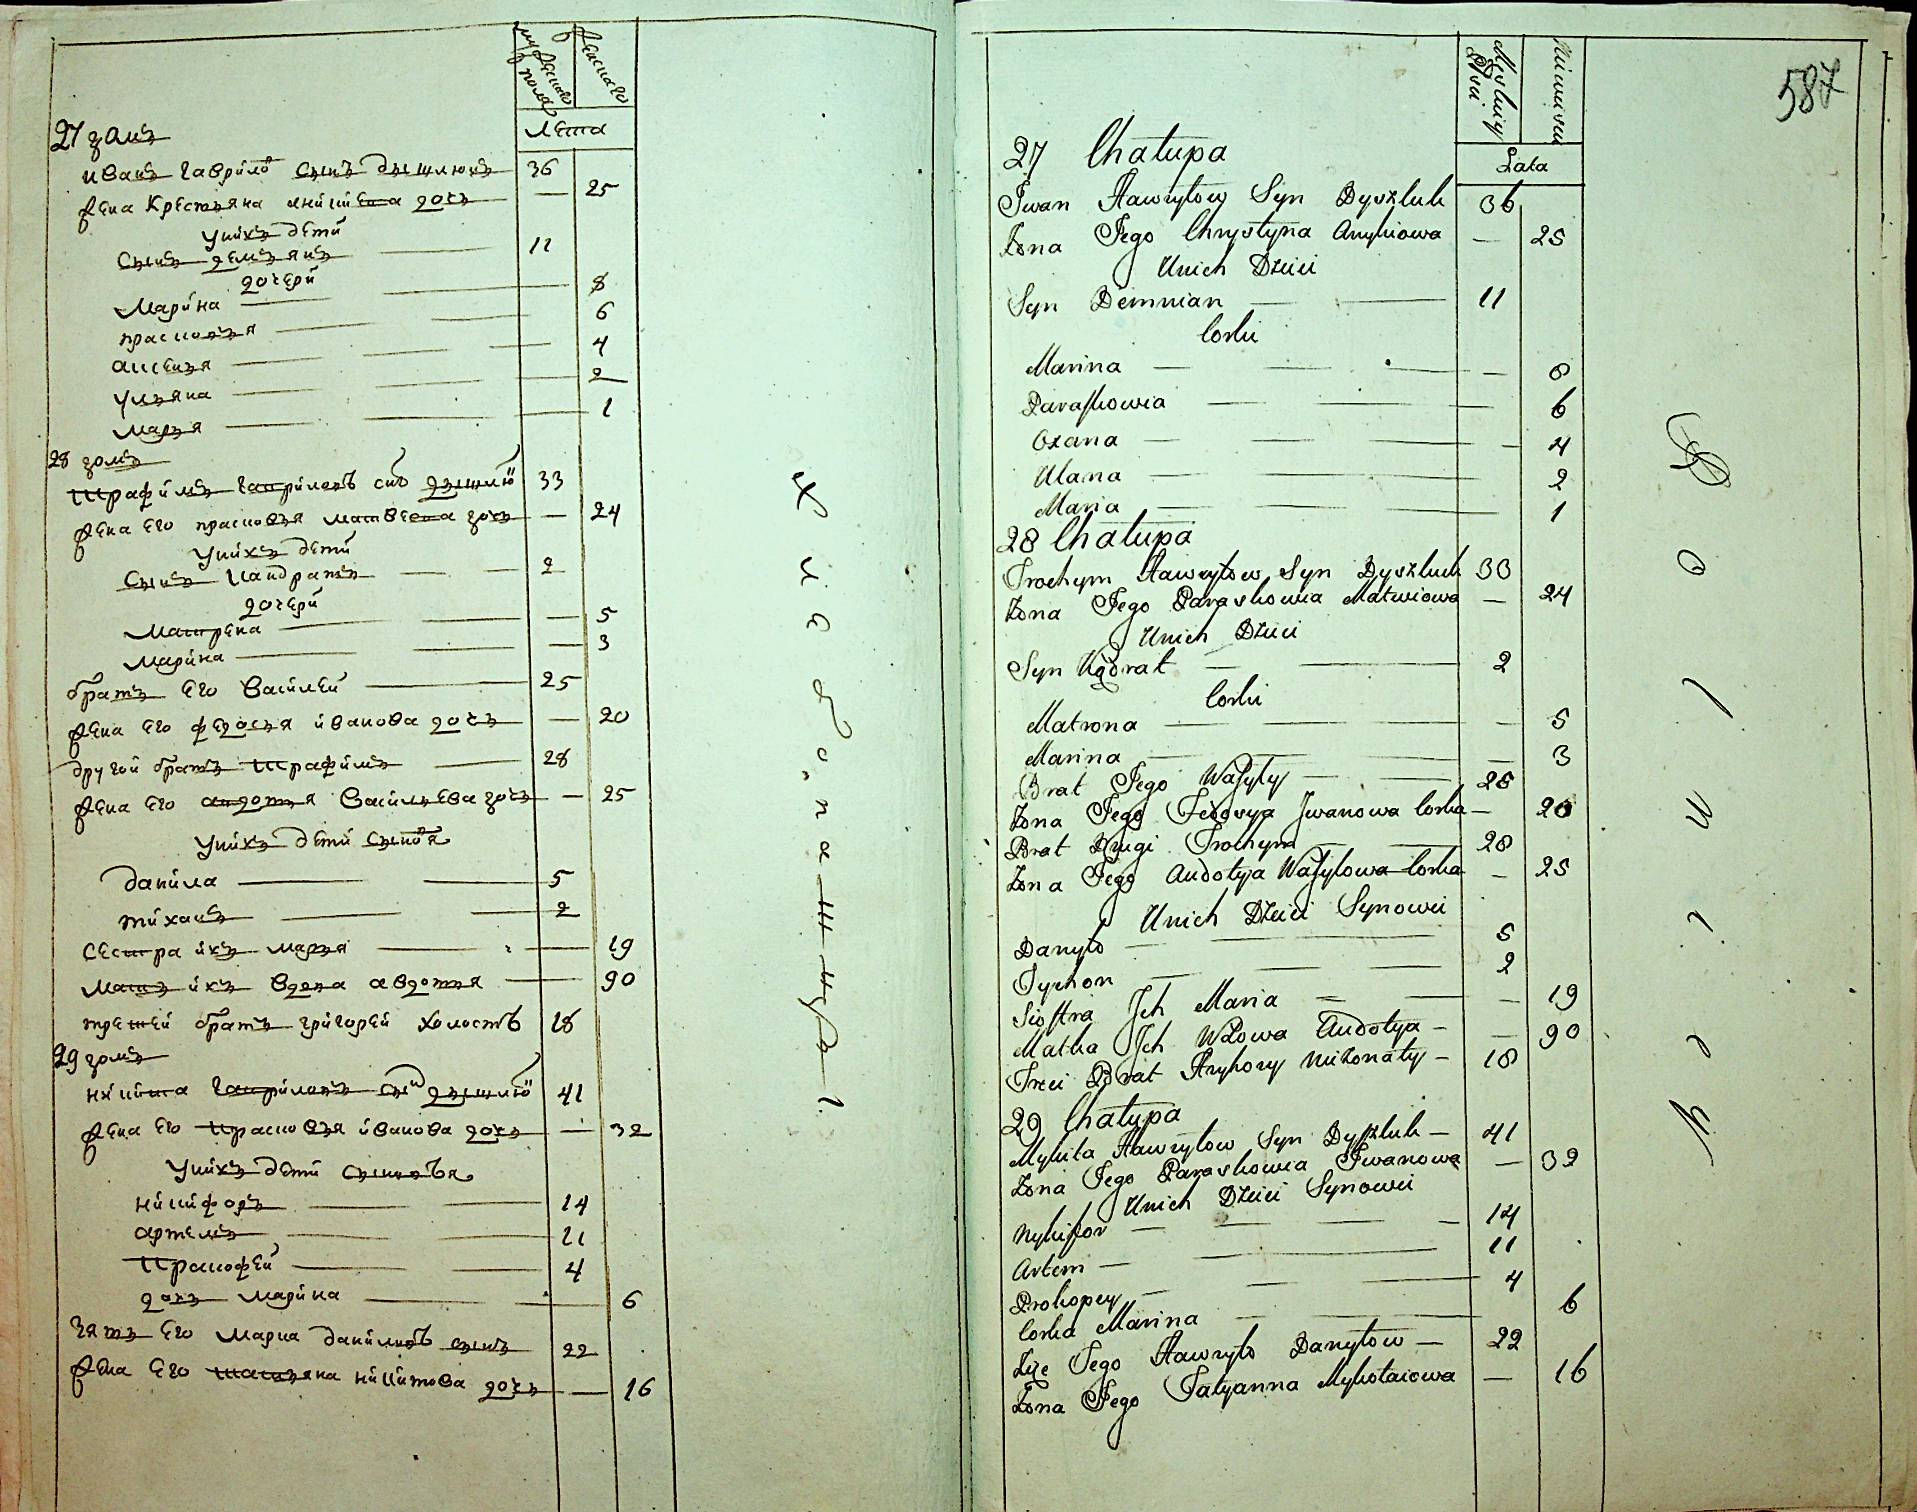 мужеска пола
женска
лета
27 домъ
иванъ Гаврилов сынъ дышлюкъ 36
жена Крестьяна дочь — 25
у нихъ дети
сынъ демьянъ — 11
дочери
Марина — 8
прасковья — 6
аксенья — 4
ульяна — 2
марья — 1
28 домъ
трафимъ Гавриловъ снъ дышлю 33
жена Его прасковья матвеева дочь — 24
у нихъ дети
сынъ Кандратъ — 2
дочери
матрена — 5
марина — 3
братъ Его василей — 25
жена Его федосья иванова дочь — 20
другой братъ трафимъ — 28
жена Его авдотья васильева дочь — 25
у нихъ дети сыновя
данила — 5
тиханъ — 2
сестра ихъ марья — 19
мать ихъ вдова авдотья — 90
третей братъ григорей холостъ 18
29 домъ
никита Гавриловъ снъ дышлю 41
жена Его прасковья иванова дочь — 32
у нихъ дети сыновья
никифоръ — 14
артемъ — 11
Пракофей — 4
дочь марина — 6
зять Его марка даниловъ сынъ 22
жена Его татьяна никитова дочь — 16
587
Męskiey Płci
Niewieści
Lata
27 Chałupa
Iwan Hawryłow Syn Dyszluk 36
Żona Jego Chrystyna — 25
U nich Dzieci
Syn Demnian — 11
Corki
Marina — 8
Paraskowia — 6
Oxana — 4
Ulana — 2
Maria — 1
28 Chałupa
Trochym Hawryłow Syn Dyszluk 33
Żona Jego Paraskowia Matwiowa — 24
U nich Dzieci
Syn Kądrat — 2
Corki
Matrona — 5
Marina — 3
Brat Jego Wasyly — 25
Żona Jego Fedosya Jwanowa Corka — 20
Brat Drugi Trochym — 28
Żona Jego Audotya Wasylowa Corka — 25
U nich Dzieci Synowei
Danyło — 5
Tychon — 2
Siostra Jch Maria — 19
Matka Jch Wdowa Audotya — 90
Trzci Brat Hryhory nieżonaty — 18
29 Chałupa
Mykita Hawryłow Syn Dyszluk — 41
Żona Jego Paraskowia Iwanowa — 32
U nich Dzieci Synowei
Nykifor — 14
Artem — 11
Prokopey — 4
Corka Marina — 6
Zię Jego Hawryło Danyłow — 22
Żona Jego Tatyanna Mykołaiowa — 16